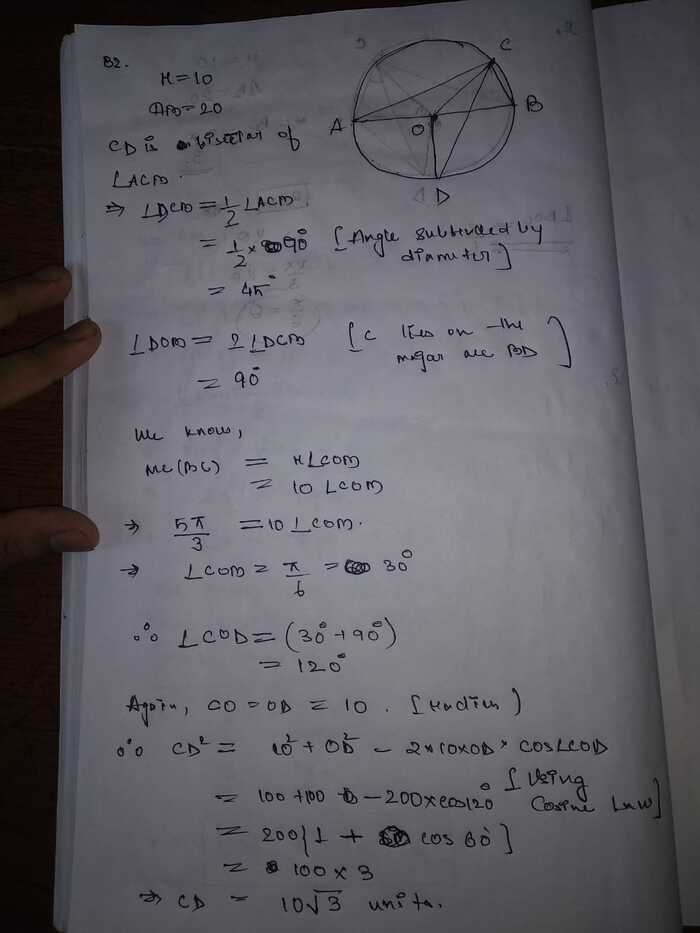 B2.
r = 10
AB = 20
CD is bisector of
∠ACB.
⇒ ∠DCB = 1/2 ∠ACB
= 1/2 × 90° [Angle subtended by diameter]
= 45°
∠DOB = 2∠DCB [C lies on the major arc BD]
= 90°
We know,
arc(BC) = r∠COB
= 10 ∠COB
⇒ 5π/3 = 10 ∠COB.
⇒ ∠COB = π/6 = 30°
∴ ∠COD = (30° + 90°)
= 120°
Again, CO = OD = 10. [Radius]
∴ CD² = 10² + OD² − 2×10×OD× cos∠COD
= 100 + 100 − 200×cos120° [Using Cosine Law]
= 200{1 + cos 60°]
= 100 × 3
⇒ CD = 10√3 units.
C
B
A
O
D